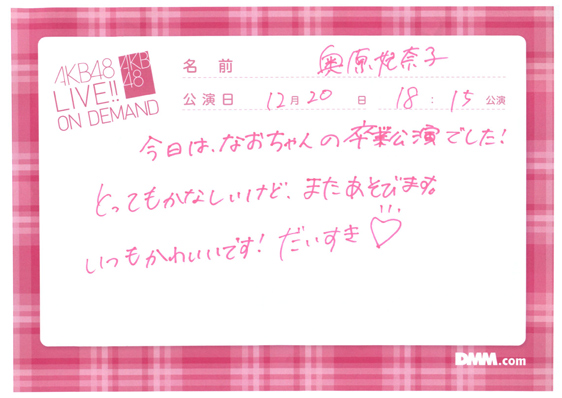 AKB48
LIVE!!
ON DEMAND
AKB
48
名 前 奥原妃奈子
公演日 12月20日 18:15公演
今日は、なおちゃんの卒業公演でした!
とってもかなしいけど、またあそびます。
いつもかわいいです!だいすき♡
DMM.com